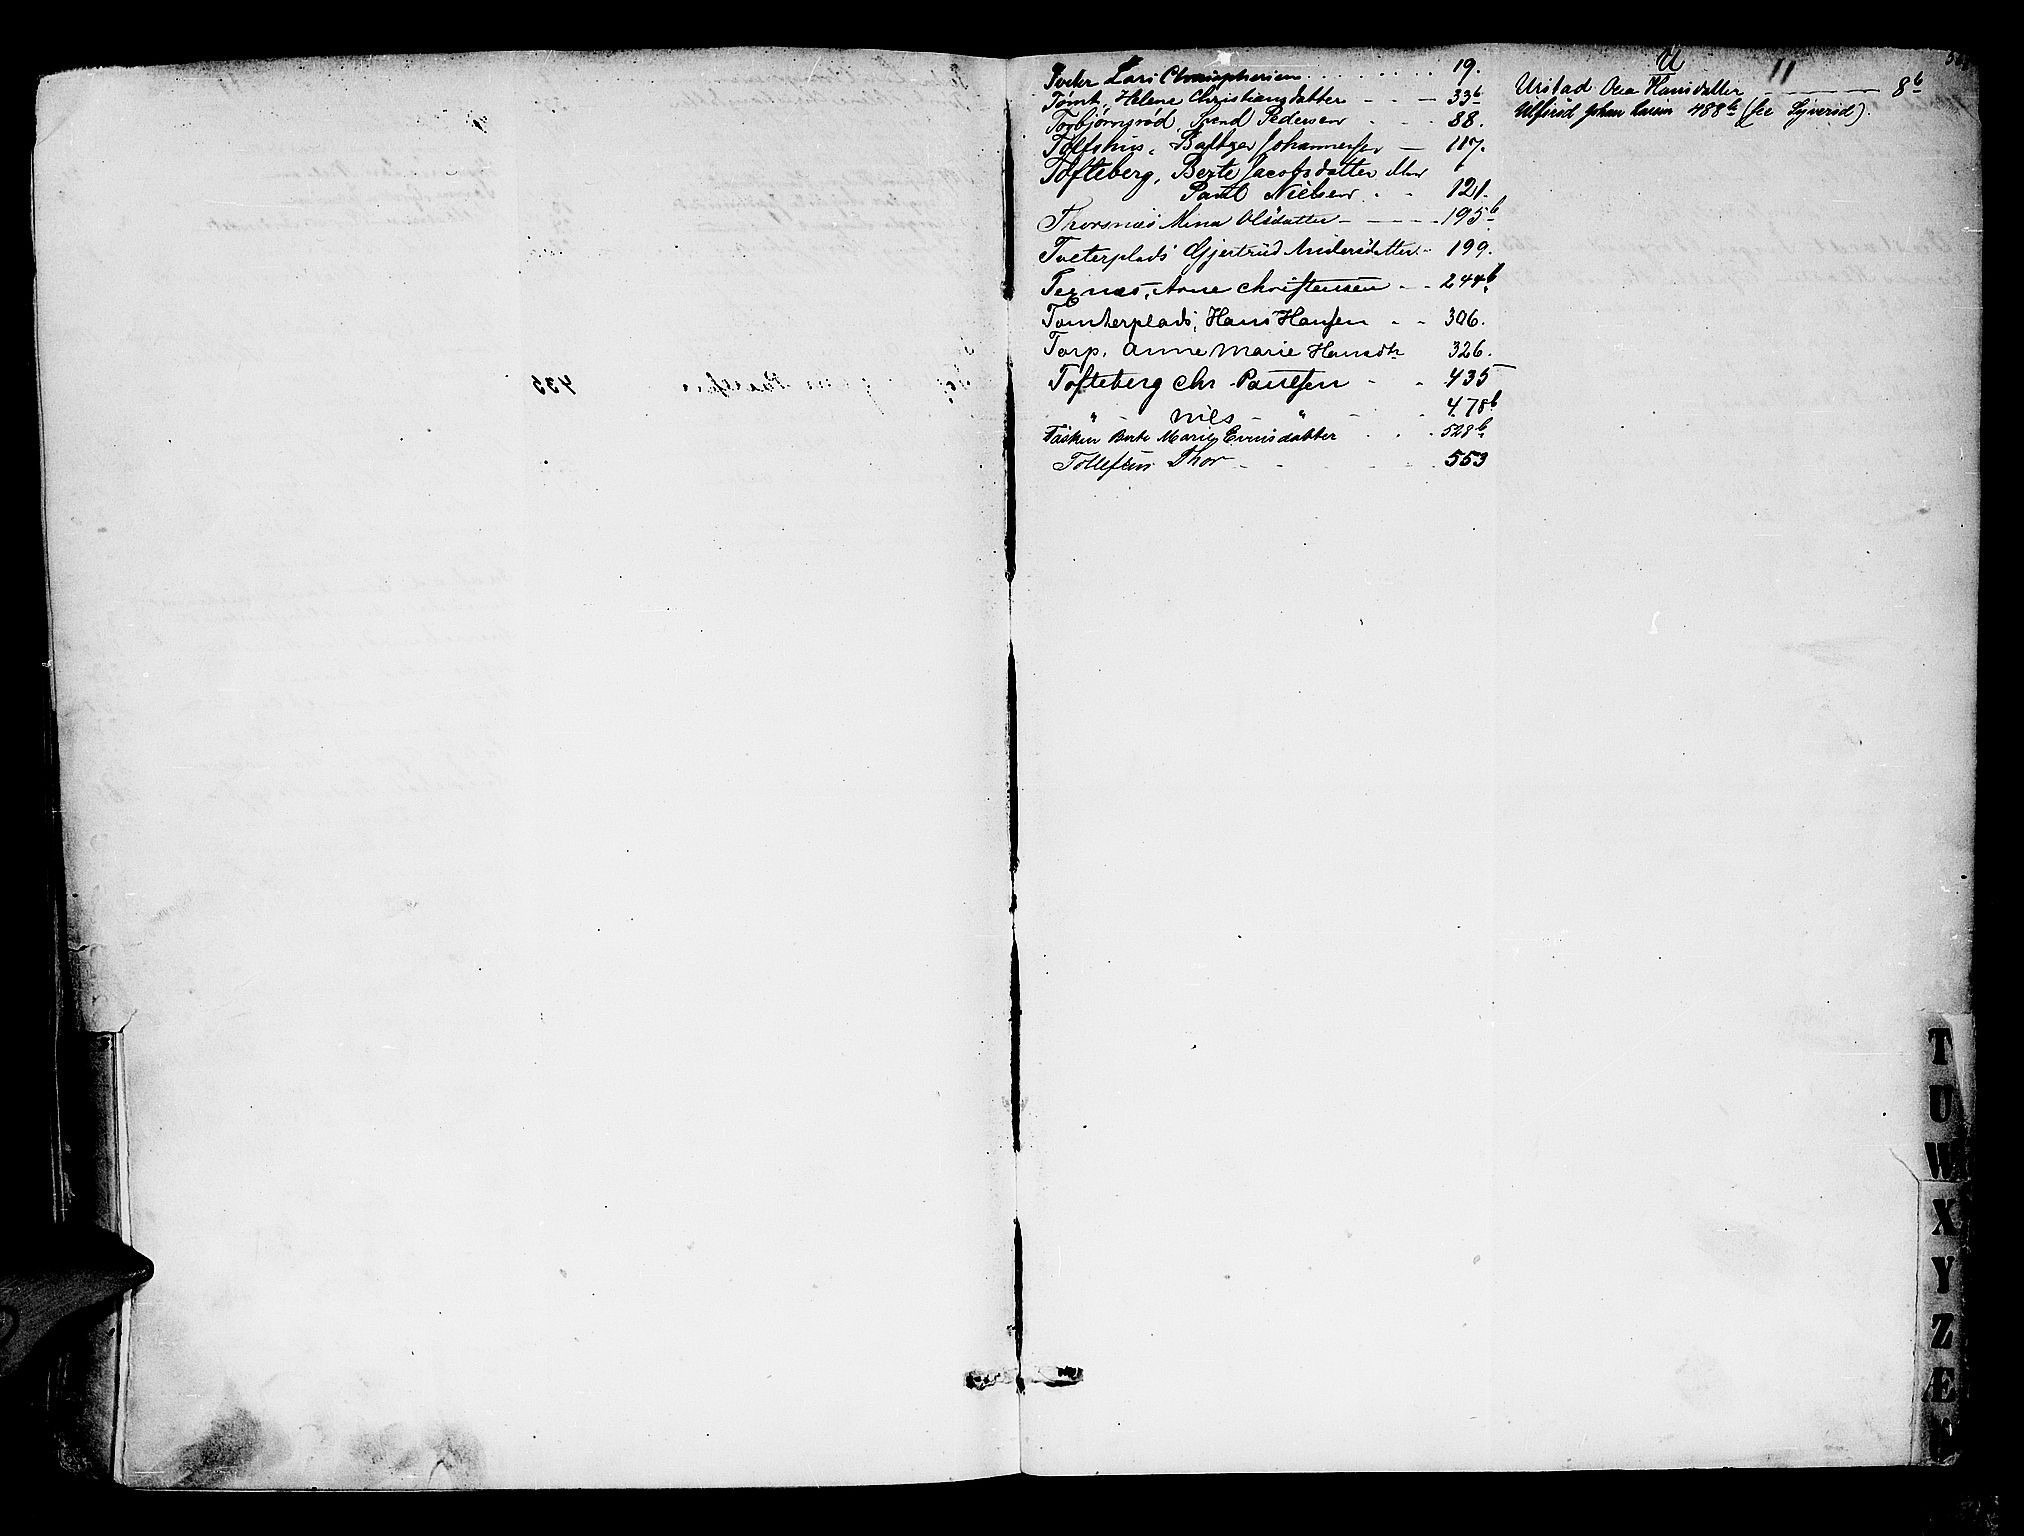 Tveter Lars Christophersen . . . . . . . . . 19.
Tømt, Helene Christiansdatter - - - 33b
Torbjørnsrød, Svend Pedersen - - - 88.
Toltshus, Baltzer Johannessen - 117.
Tofteberg, Berte Jacobsdatter
Pavel Nielsen . . 121.
Thorsnæs Mina Olsdatter - - - - 195b
Tveterplads Gjertrud Andersdatter - 199.
Ternæs, Arne Christensen - - 244b
Tomterplads, Hans Hansen - - 306.
Torp, Anne Marie Hansdtr 326.
Tofteberg Chr. Paulsen - - 435
" - Nils - " - - 478b
Tasken Berte Marie Evensdatter . . . 528b
Tollefsen Thor - - - - 553
U
11
Urstad Hansdatter - - - - 8b
Ulfsrød Johan Larsen 488b (se Syverød).
T
U
W
X
Y
Z
Æ